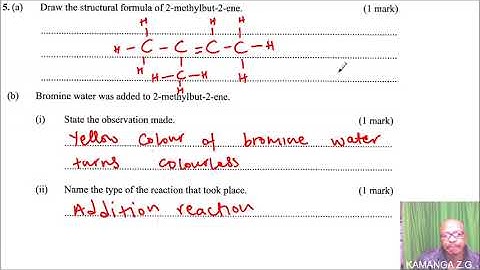 5. (a) Draw the structural formula of 2-methylbut-2-ene. (1 mark)
H H H
H - C - C = C - C - H
H H - C - H H
H
(b) Bromine water was added to 2-methylbut-2-ene.
(i) State the observation made. (1 mark)
Yellow colour of bromine water
turns colourless
(ii) Name the type of the reaction that took place. (1 mark)
Addition reaction
KAMANGA Z.G